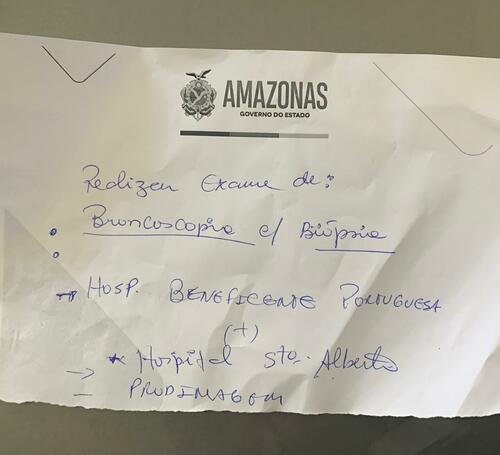 AMAZONAS
GOVERNO DO ESTADO
Realizar Exame de:
Broncoscopia c/ Biópsia
→ HOSP. BENEFICENTE PORTUGUESA
(+)
* Hospital Sto. Alberto
→ PRODIMAGEM